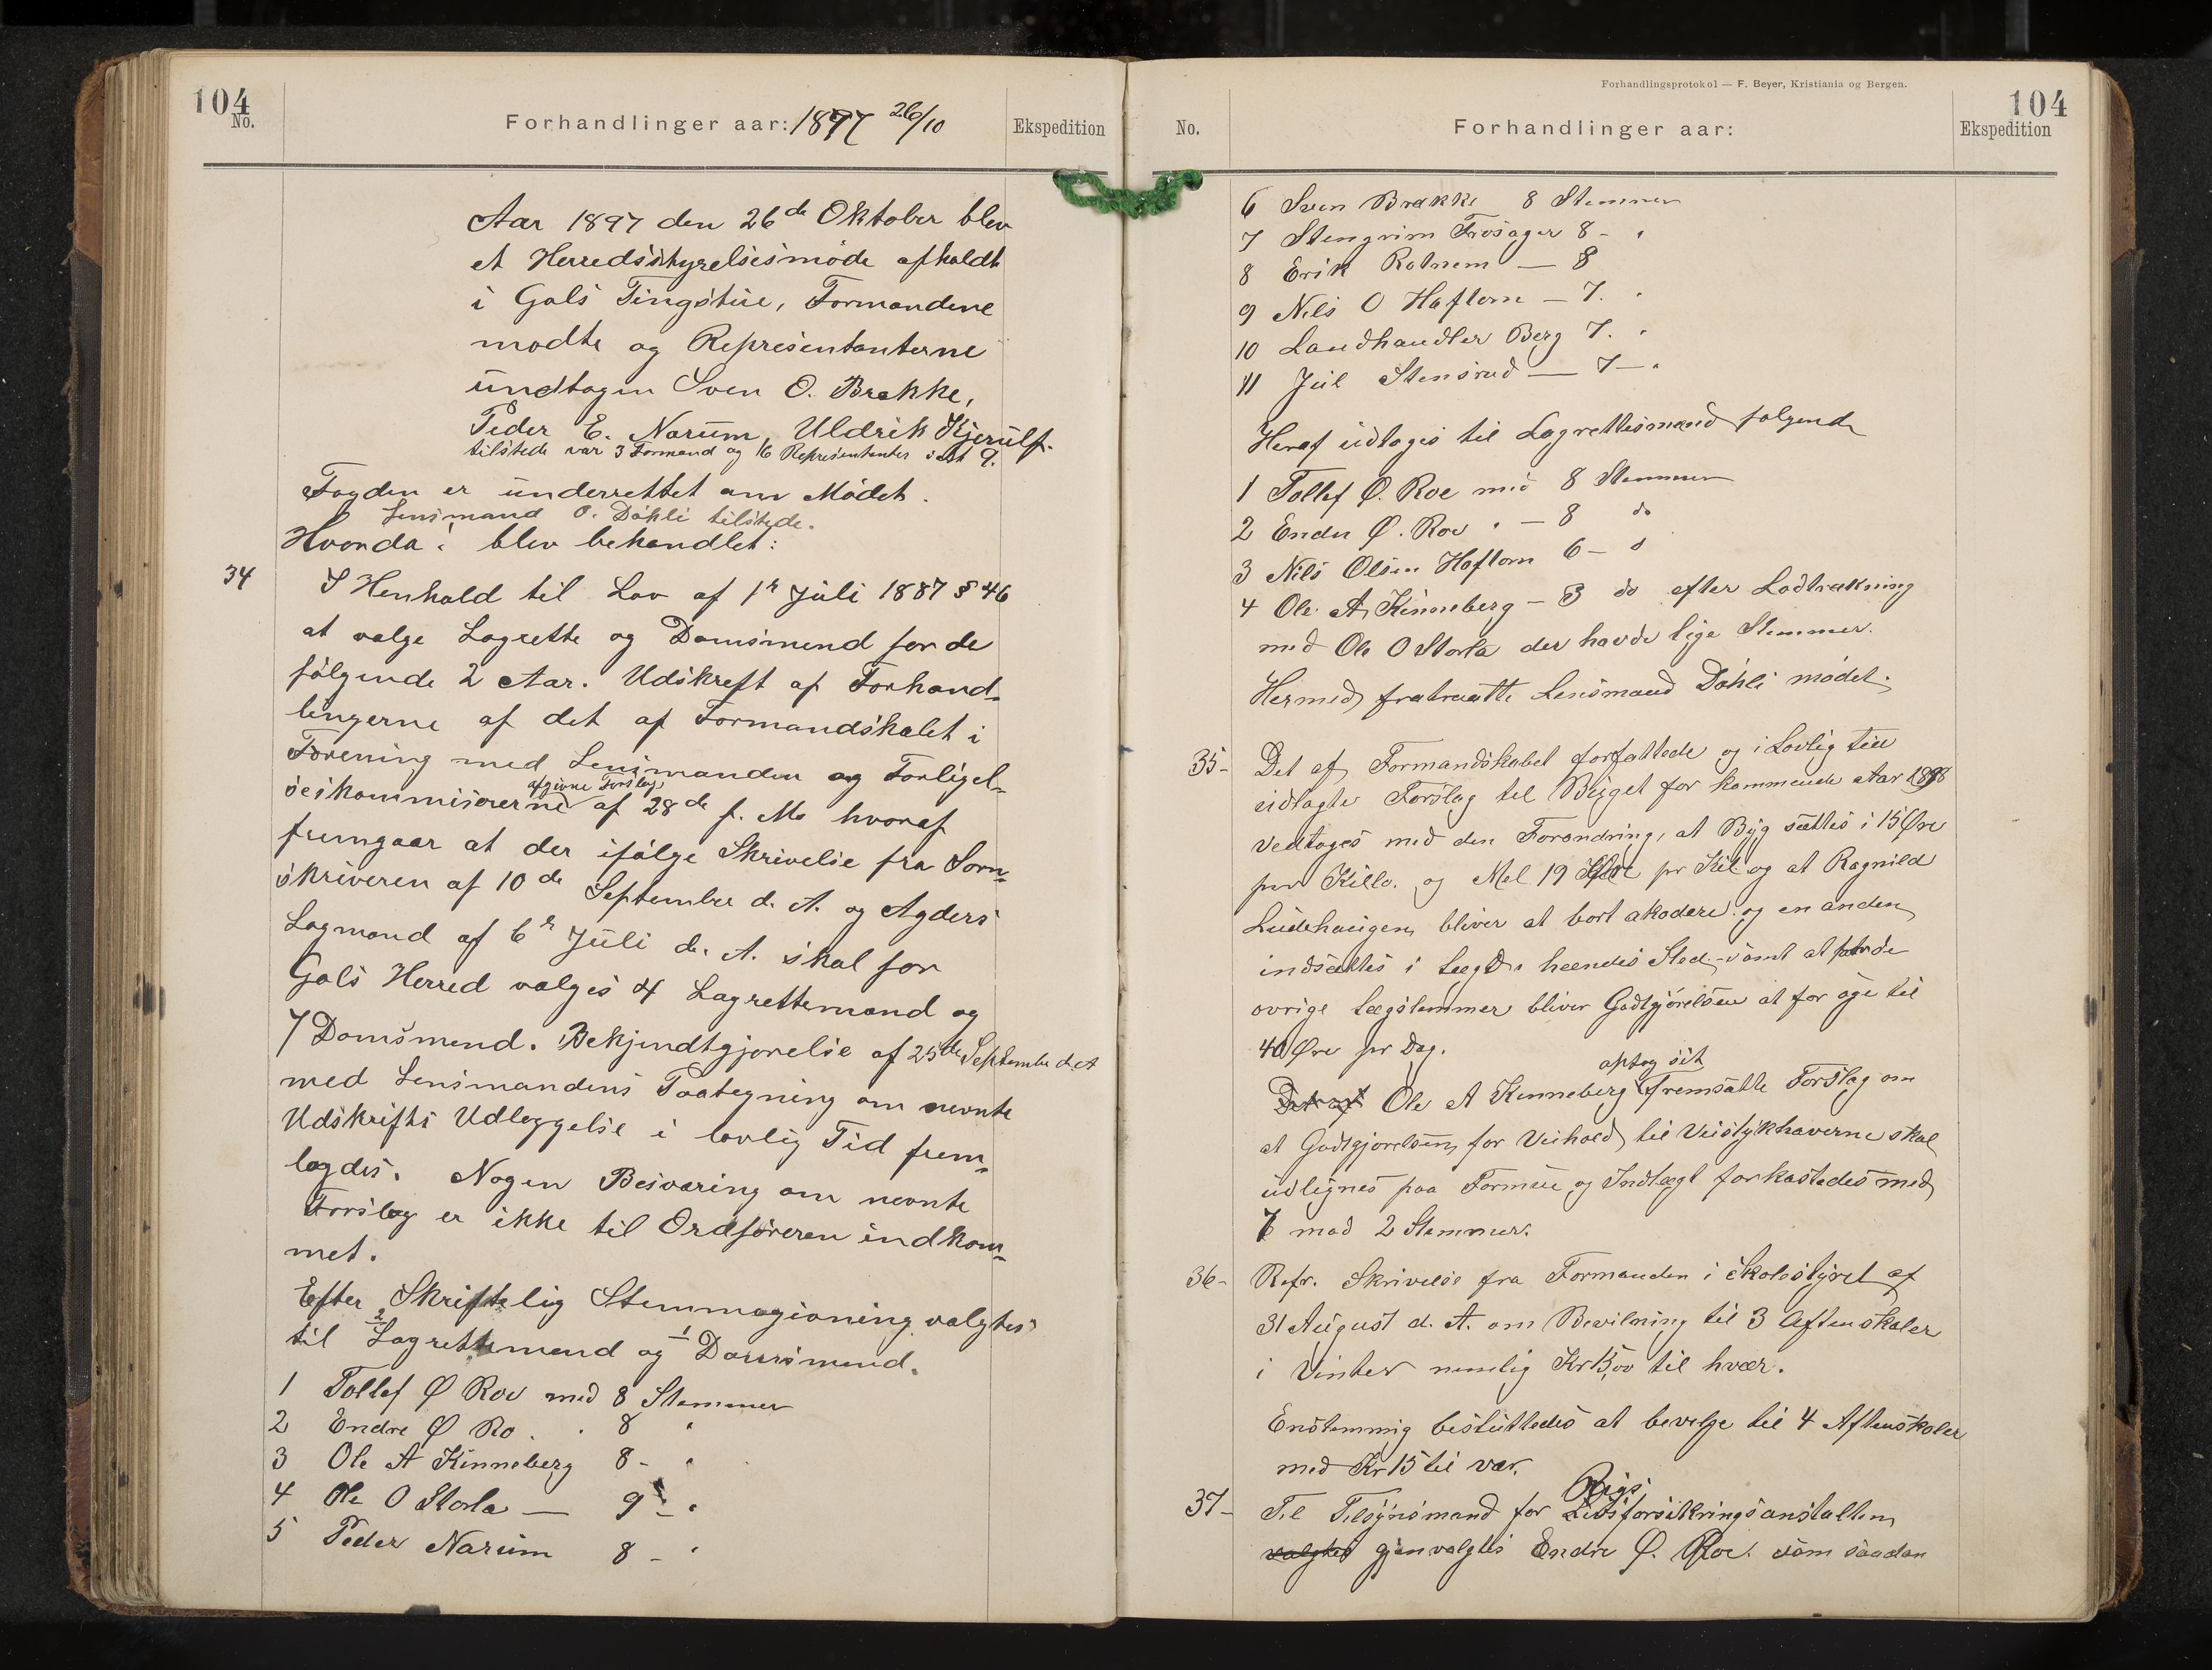 104
No.
Forhandlinger aar: 1897 26/10
Ekspedition
Aar 1897 den 26de Oktober blev
et Herredsstyrelsesmöde afholdt
i Gols Tingstue, Formændene
mödte og Repræsentanterne
undtagen Sven O. Brekke,
Peder E. Narum, Uldrik Kjerulf.
tilstede var 3 Formænd og 6 Repræsentanter ialt 9.
Fogden er underrettet om Mödet.
Lensmand O. Döhli tilstede.
Hvorda: blev behandlet:
34 I Henhold til Lov af 1r Juli 1887 § 46
at vælge Lagrette og Domsmend for de
fölgende 2 Aar. Udskreft af Forhand-
lingerne af det af Formandskabet i
Forening med Lensmanden og Forligel-
afgivne Forslag
seskommisererne af 28de f. M. hvoraf
fremgaar at der ifölge Skrivelse fra Sorn-
skriveren af 10de September d. A. og Agders
Lagmand af 6r Juli d. A. skal for
Gols Herred vælges 4 Lagrettemænd og
7 Domsmend. Bekjendtgjørelse af 25de September d. A
med Lensmandens Paategning om nevnte
Udskrifts Udleggelse i lovlig Tid frem-
lagdes. Nogen Besværing om nevnte
Forslag er ikke til Ordføreren indkom-
met.
Efter Skriftelig Stemmegivning valgtes
til 2 Lagrettemend og 1 Domsmend.
1 Tollef Ø Roe med 8 Stemmer
2 Endre Ø Ro . . 8 "
3 Ole A Kinneberg 8 - "
4 Ole O Storla — 9 - "
5 Peder Narum 8 - "
Forhandlingsprotokol — F. Beyer, Kristiania og Bergen.
104
No.
Forhandlinger aar:
Ekspedition
6 Sven Brække 8 Stemmer
7 Stengrim Trøsager 8 - "
8 Erik Rotnem — 8
9 Nils O Haftorn — 7. "
10 Landhandler Berg 7. "
11 Juel Stensrud — 7 — "
Heraf udtoges til Lagrettesmænd følgende
1 Tollef Ø. Roe med 8 Stemmer
2 Endre Ø. Roe " — 8 do
3 Nils Olsen Haftorn 6 — d
4 Ole A. Kinneberg — 3 do efter Lodtrækning
med Ole O Storla der havde lige Stemmer.
Hermed fratraatte Lensmand Döhli mødet.
35- Det af Formandskabet forfattede og i Lovlig tid
udlagte Forslag til Bugget for kommende Aar 1898
vedtoges med den Forandring, at Byg sættes i 15 Øre
per Killo. og Mel 19 Øre pr Kil og at Ragnild
Ludehaugen bliver at bort akodere. og en anden
indsættes i Lægd i hændes Sted - samt at for de
øvrige Lægslemmer bliver Godtgjörelsen at for øge til
40 Øre pr Dag.
optog sit
Det af Ole A Kinneberg fremsatte Forslag om
at Godtgjørelsen for Veihold til Veistykhaverne skal
udlignes paa Formue og Indtægt forkastedes med
7 mod 2 Stemmer.
36- Refr. Skrivelse fra Formanden i Skolestyret af
31 August d. A. om Bevilning til 3 Aftenskoler
i Vinter nemlig Kr 15,00 til hvær.
Enstemmig besluttedes at bevilge til 4 Aftenskoler
med Kr 15 til vær.
Rigs
37- Til Tilsynsmand for Livsforsikringsanstalten
valgtes gjenvalgtes Endre Ø. Roe. som saadan